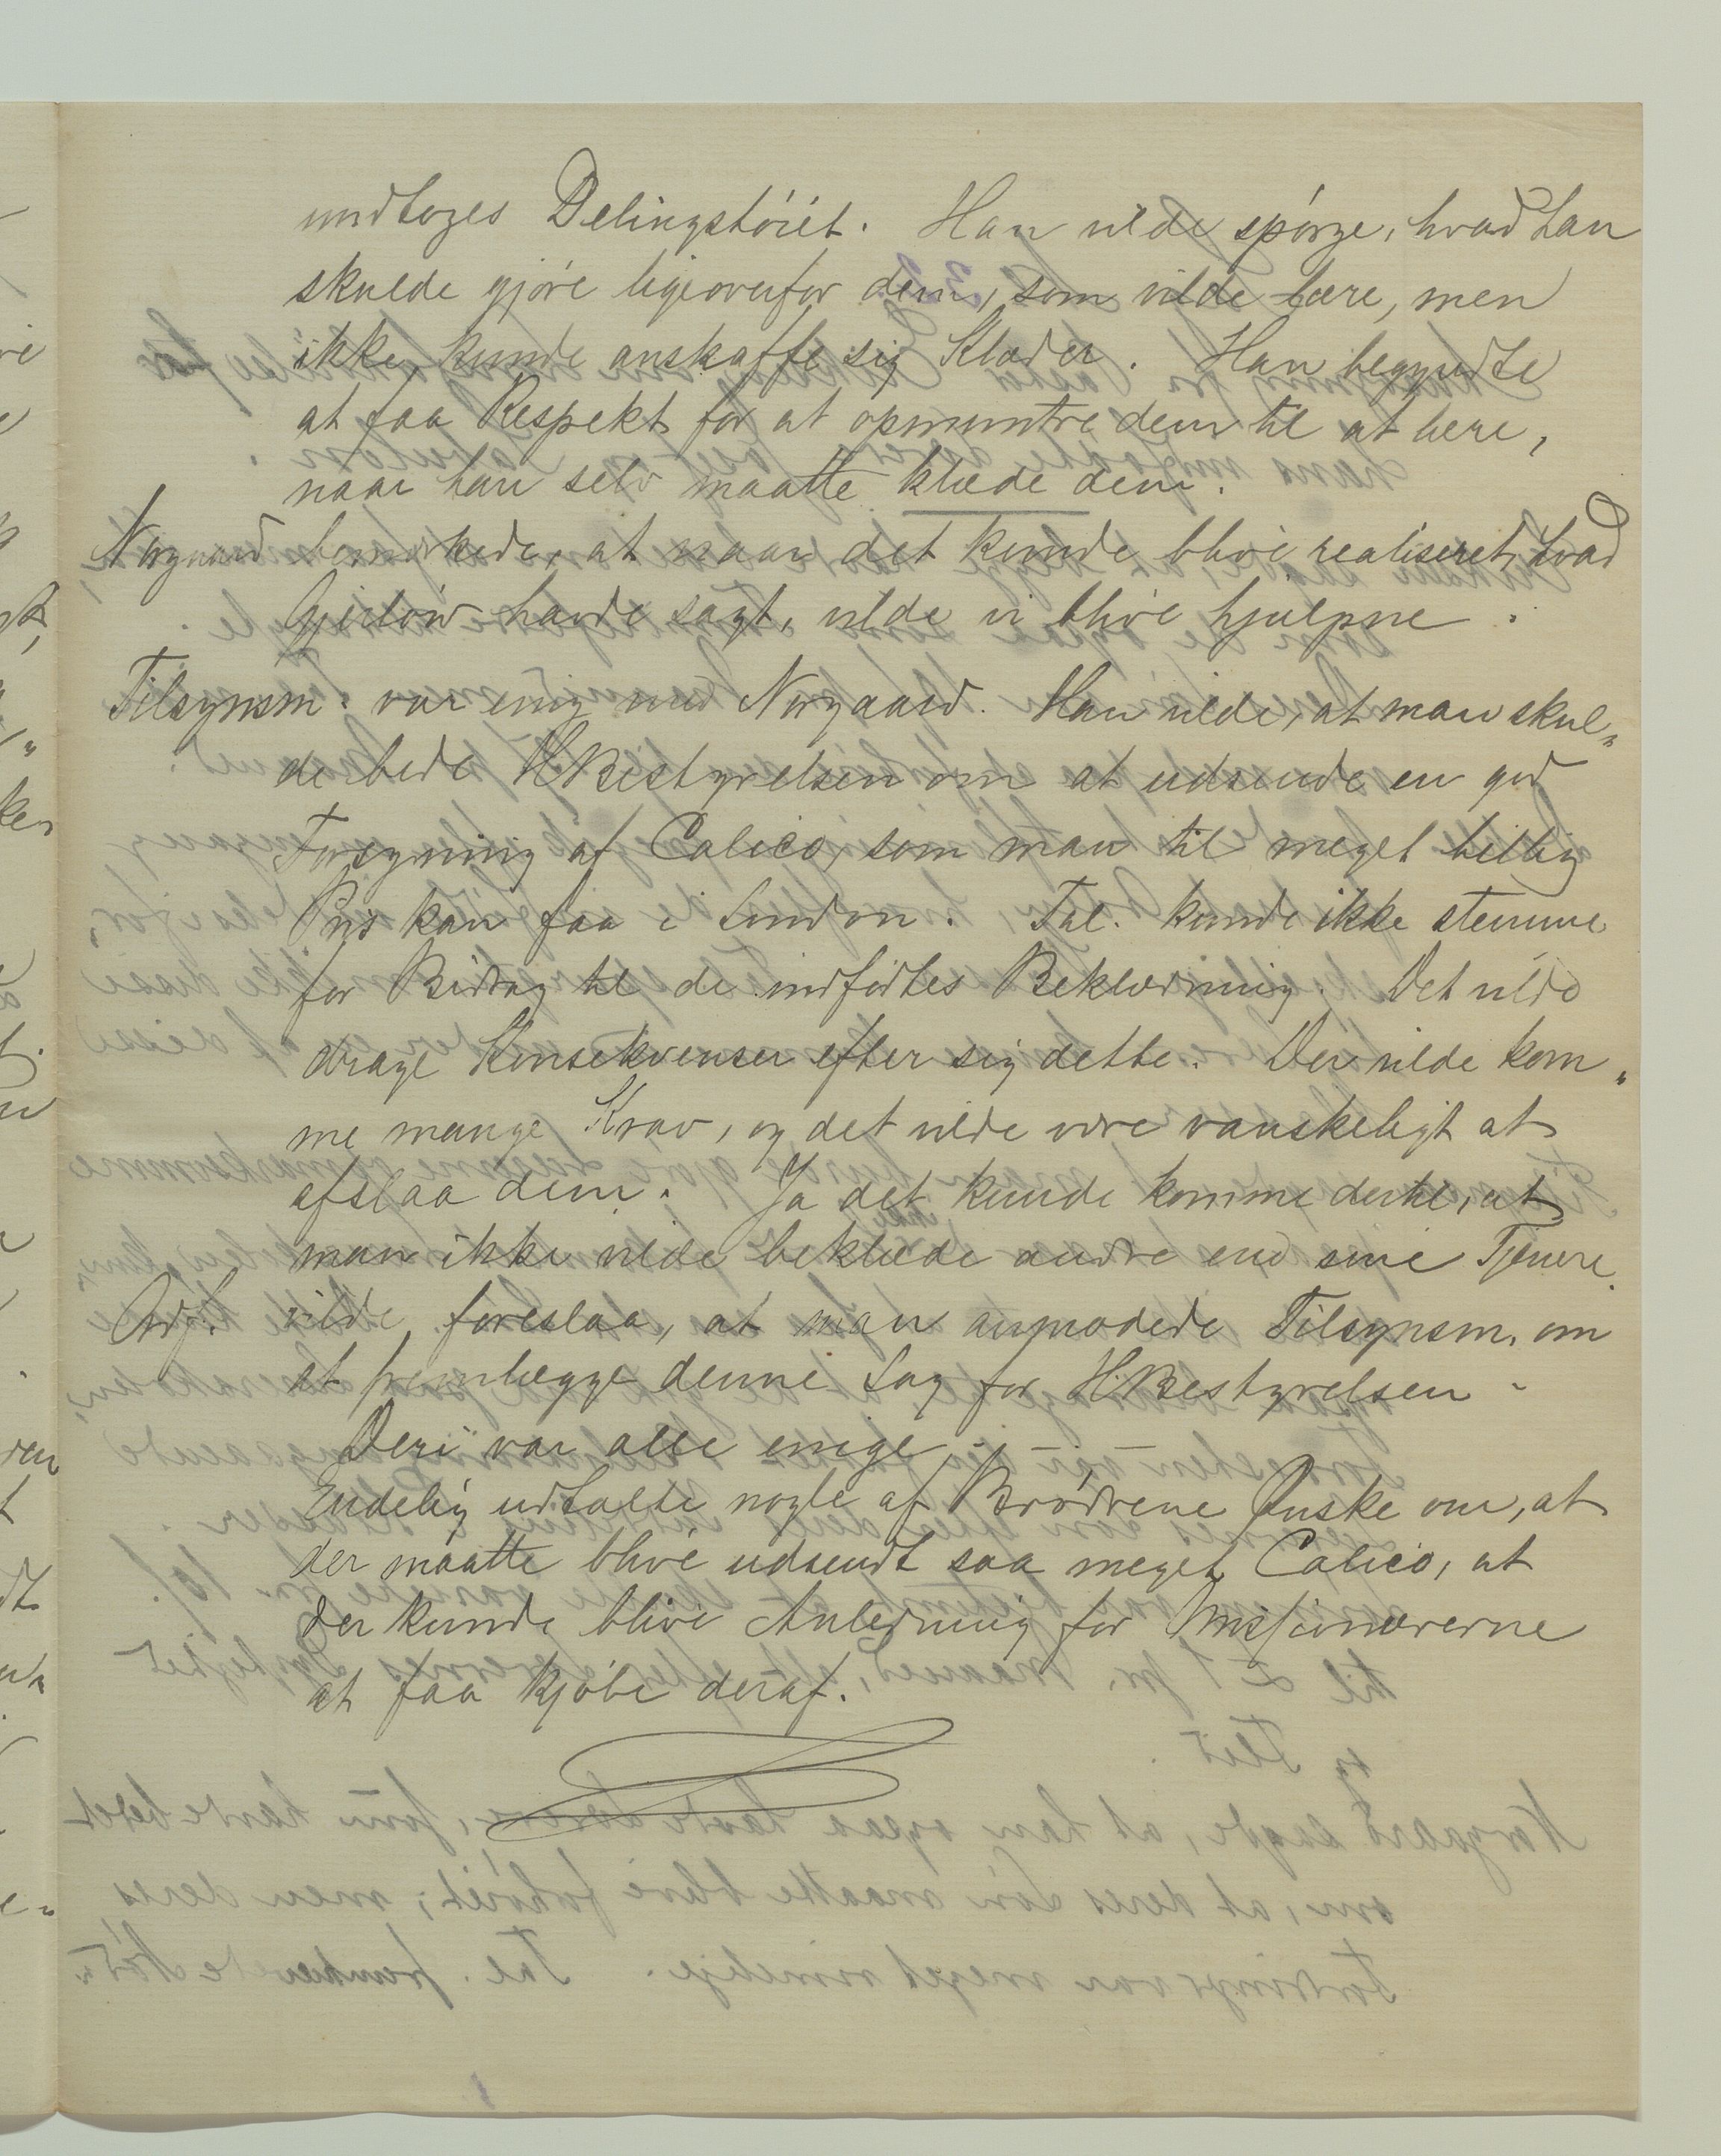 undtoges Delingstöiet. Han vilde spörge, hvad han
skulde gjöre ligeoverfor dem, som vilde lære, men
ikke kunde anskaffe sig Klæder. Han begyndte
at faa Respekt for at opmuntre dem til at lære,
naar han selv maatte klæde dem.
Norgaard bemærkede, at naar det kunde blive realiseret, hvad
Gjerlöw havde sagt, vilde vi blive hjulpne.
Tilsynsm. var enig med Norgaard. Han vilde, at man skul„
de bede HBestyrelsen om at udsende en god
Forsyning af Calico, som man til meget billig
Pris kan faa i London. Tal. kunde ikke stemme
for Bidrag til de indfödtes Beklædning. Det vilde
drage Konsekvenser efter sig dette. Der vilde kom„
me mange Krav, og det vilde være vanskeligt at
afslaa dem. Ja det kunde komme dertil, at
man ikke vilde beklæde andre end sine Tjenere.
Ordf. vilde foreslaa, at man anmodede Tilsynsm. om
at fremlægge denne Sag for HBestyrelsen.
Deri var alle enige. — —
Endelig udtalte nogle af Brödrene Önske om, at
der maatte blive udsendt saa meget Calico, at
der kunde blive Anledning for Missionærerne
at faa kjöbe deraf.